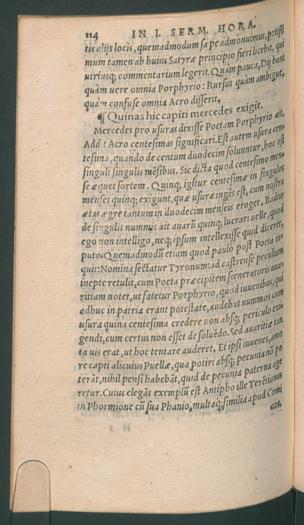 114 IN I. SERM. HORA.
tis alijs locis, quemadmodum sæpe admonuimus, potest
mum tamen ab huius Satyræ principio fieri licebit, qui
utriusq; commentarium legerit. Quàm pauca, Dij boni
quàm uere omnia Porphyrio: Rursus quàm ambigue,
quàm confuse omnia Acro disserit.
¶ Quinas hic capiti mercedes exigit.
Mercedes pro usuras dixisse Poetam Porphyrio ait.
Addit Acro centesimas significari. Est autem usura cen-
tesima, quando de centum duodecim soluuntur, hoc est
singuli singulis mēsibus. Sic dicta quod centesimo men-
se æquet sortem. Quinq; igitur centesimæ in singulos
menses quinq; exigunt, quæ usura ingēs est, cum nostra
ætas ægre tantum in duodecim menseis eroget. Badius
de singulis nummis ait auarū quinq; lucrari uelle, quod
ego non intelligo, neq; ipsum intellexisse quid diceret,
puto. Quemadmodū etiam quod paulò post Poeta in-
quit: Nomina sectatur Tyronum: ad castrense peculium
inepte retulit, cum Poeta præcipitem fœneratoris aua-
ritiam notet, ut fatetur Porphyrio, quod iuuenibus, qui
adhuc in patria erant potestate, audebat nummos cum
usura quina centesima credere non absq; periculo exi-
gendi, cum certus non esset de soluēdo. Sed auaritia tan
ta uis erat, ut hoc tentare auderet. Et ipsi iuuenes, amo
re capti alicuius Puellæ, qua potiri absq; pecunia nō po
terāt, nihil pensi habebāt, quid de pecunia paterna age
retur. Cuius elegās exemplū est Antipho ille Terētianus
in Phormione cū sua Phanio, multaq; similia apud Comi
cos,